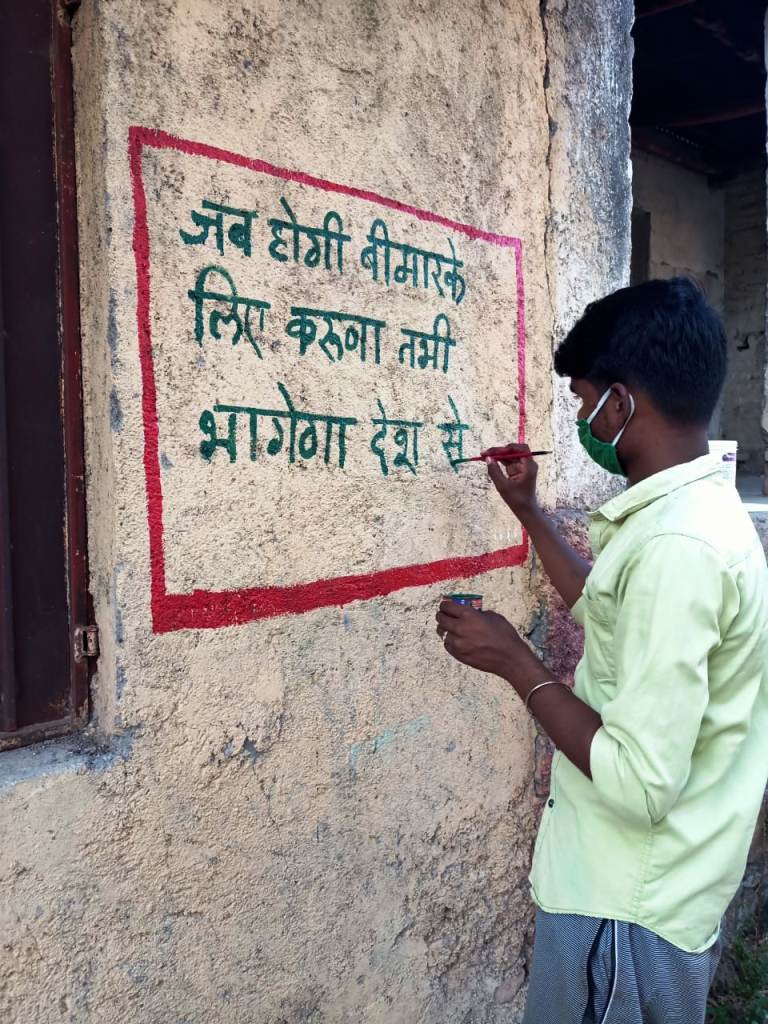 जब होगी बीमारके
लिए करूणा तभी
भागेगा देश से